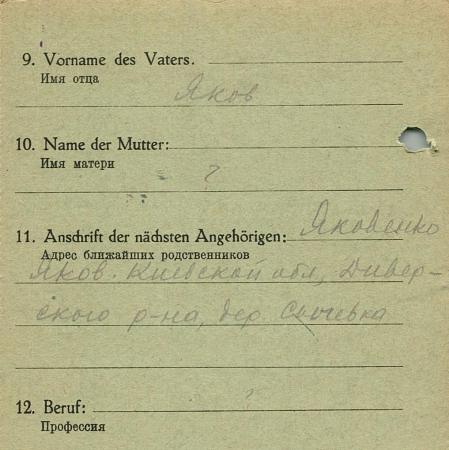 9. Vorname des Vaters.
Имя отца
Яков
10. Name der Mutter:
Имя матери
?
11. Anschrift der nächsten Angehörigen: Яковенко
Адрес ближайших родственников
Яков. Киевской обл, Дивер-
ского р-на, дер. Сычевка
12. Beruf: ?
Профессия